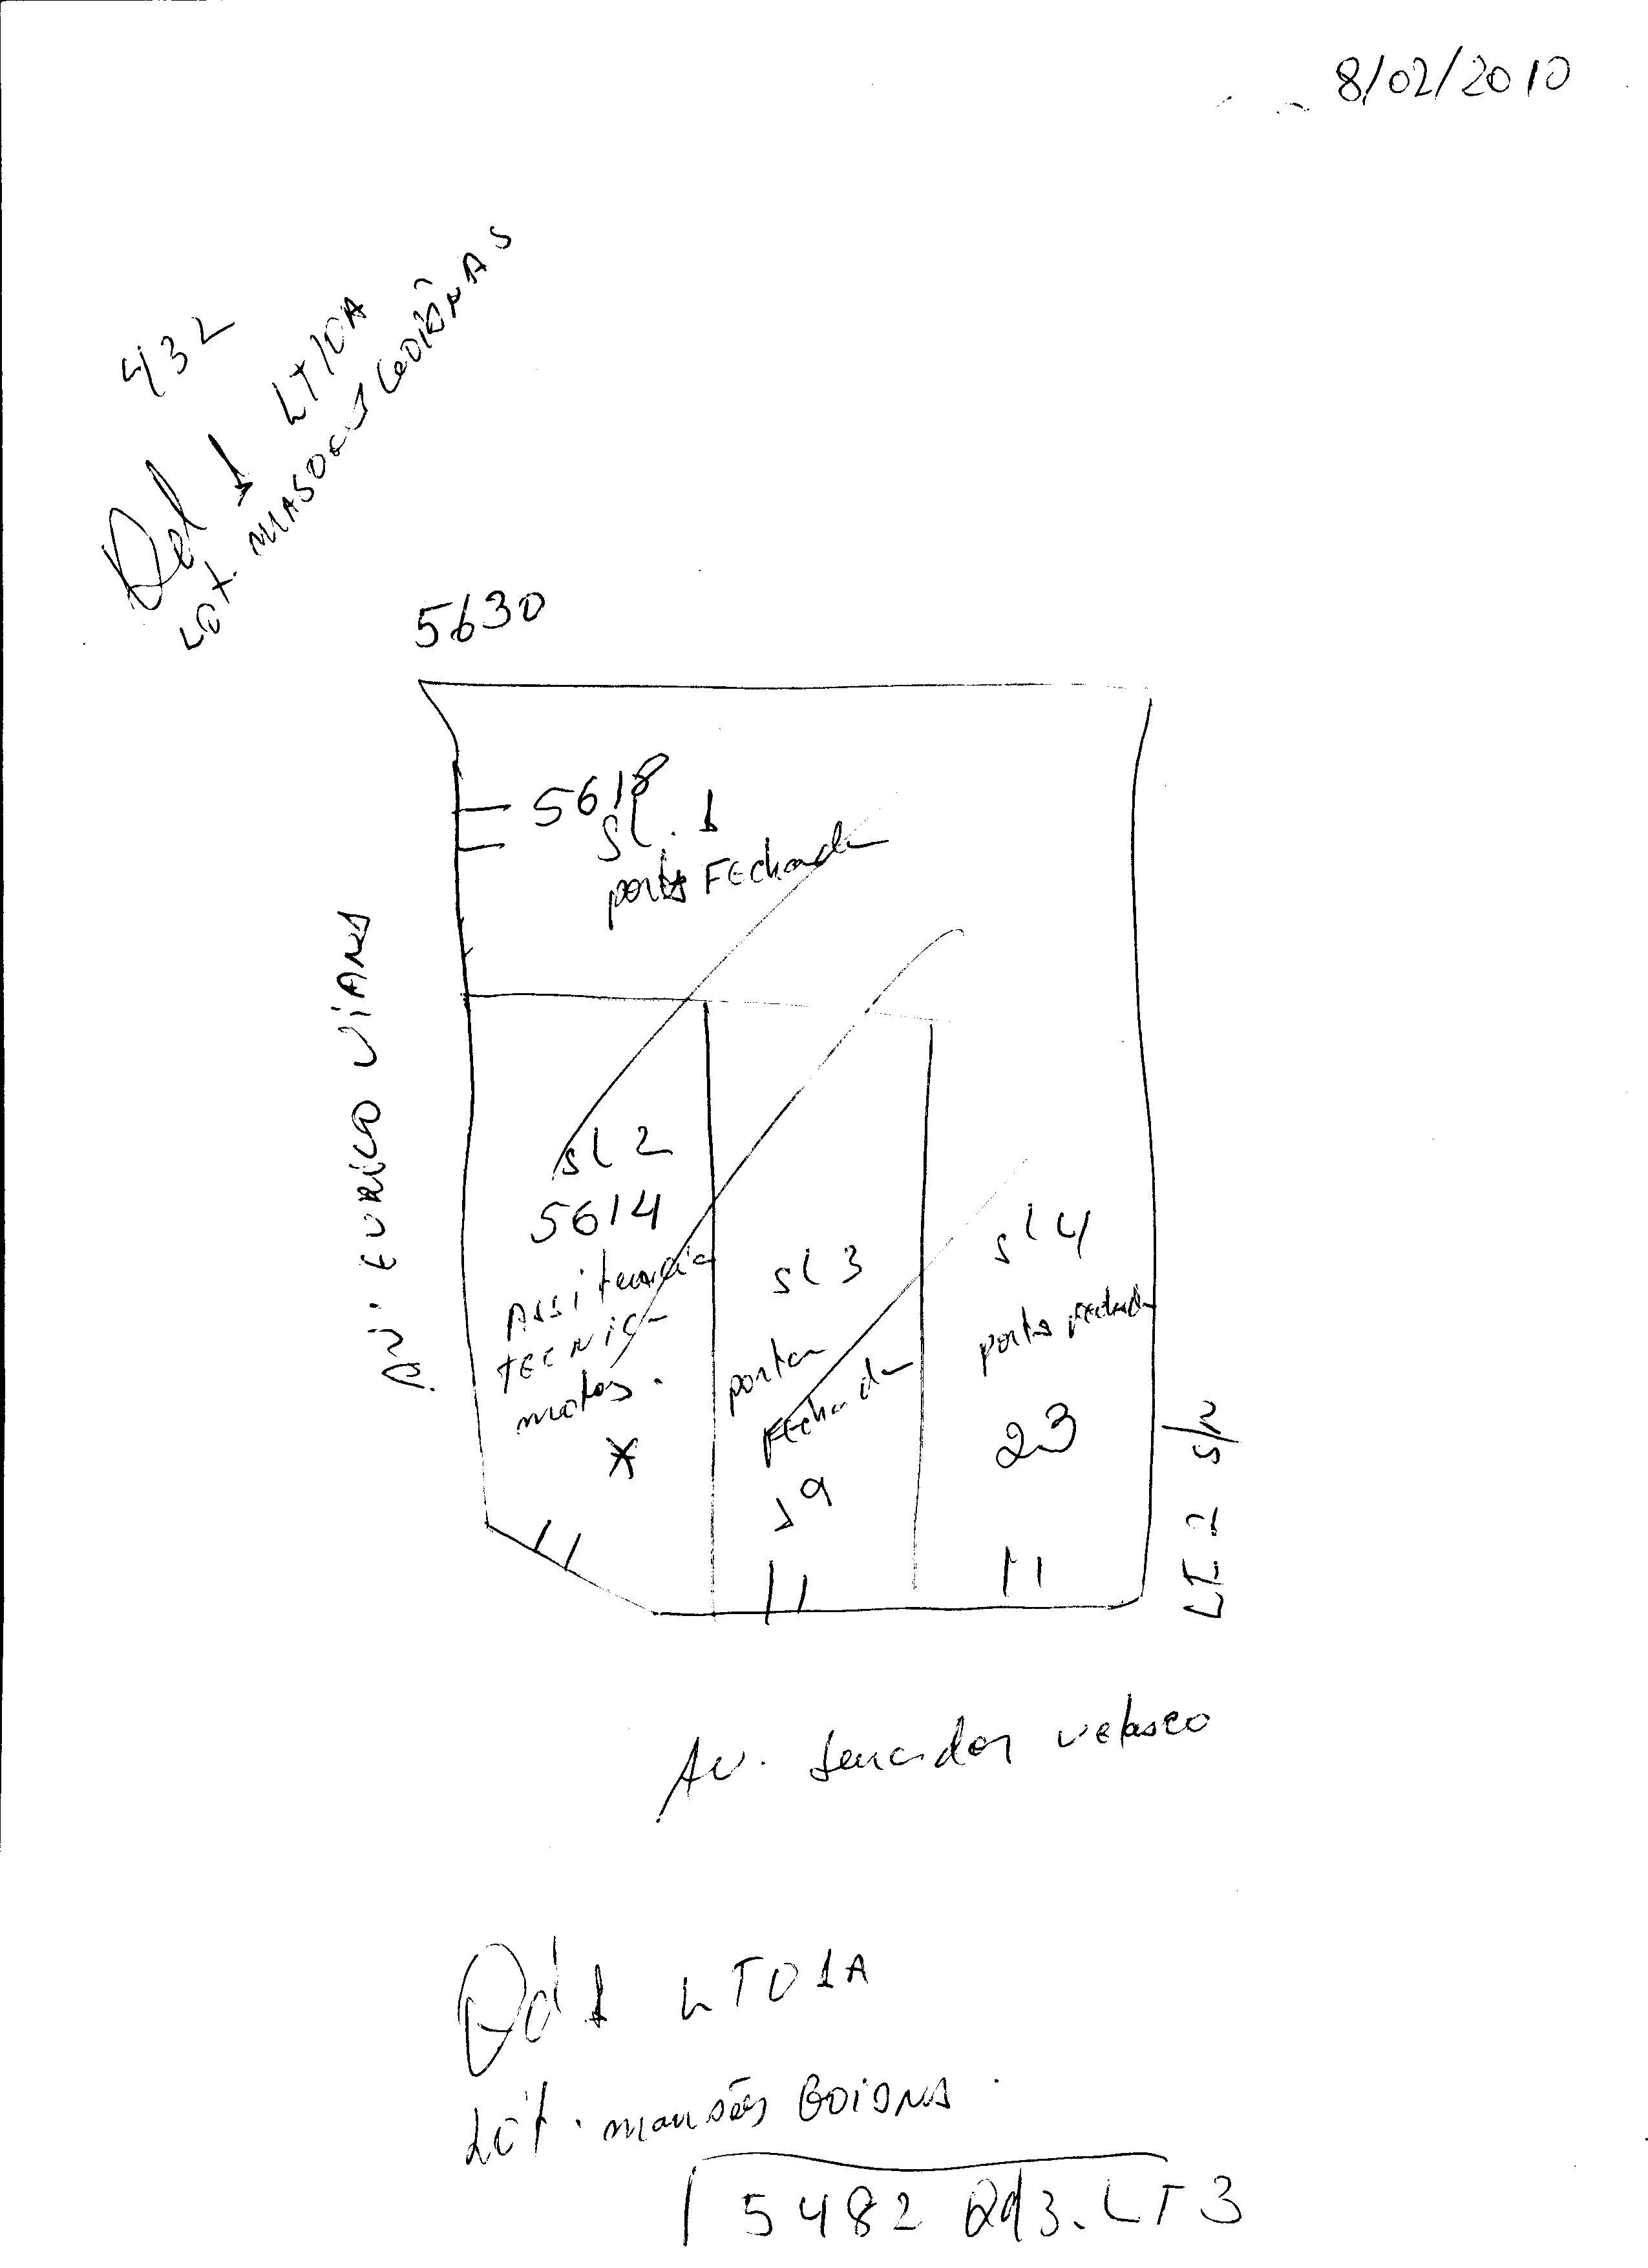 8/02/2010
432
Qd 1 LT 10A
Lot. MASOES GOIÂNAS
5630
5618
SL. 1
porta FEchada
AV. EURICO VIANA
SL 2
5614
ASSitencia
TECNICA
motos.
*
SL 3
porta
FEchada
19
SL 4
porta FEchada
23
LT. 2 S/N
AV. Senador Velasco
Qd 1 LT01A
Lot. mansões GOIANA.
5482 Qd 3. LT 3